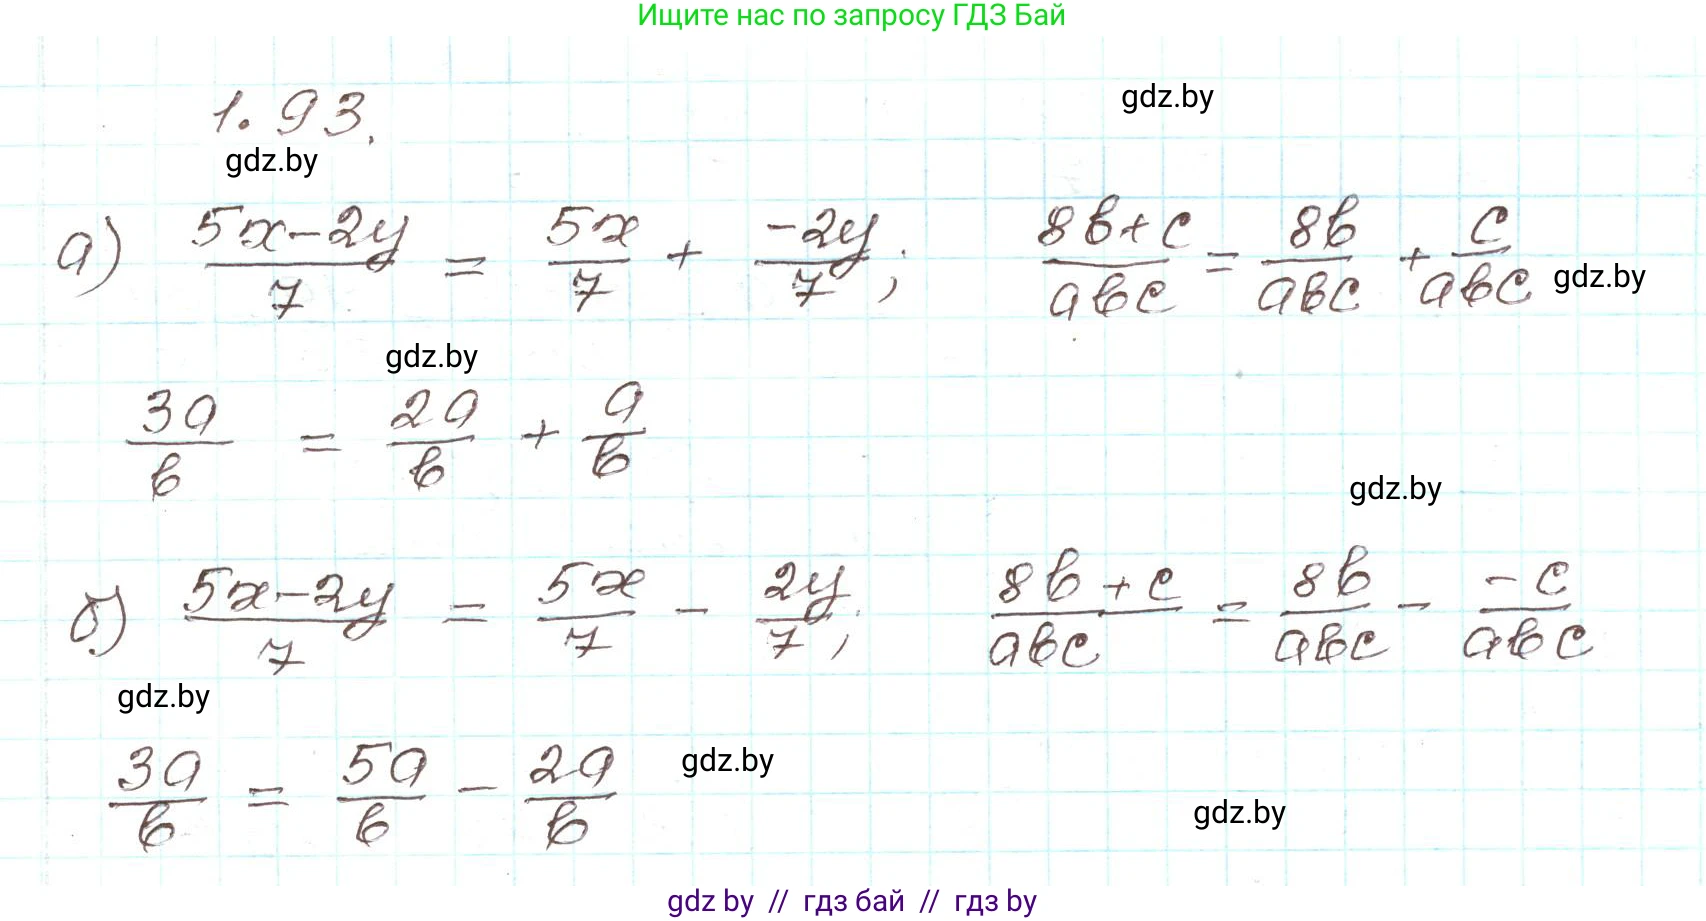 Ищите нас по запросу ГДЗ Бай
1.93.
gdz.by
gdz.by
а) (5x-2y)/7 = 5x/7 + (-2y)/7; (8b+c)/(abc) = 8b/(abc) + c/(abc)
gdz.by
gdz.by
3a/b = 2a/b + a/b
gdz.by
б) (5x-2y)/7 = 5x/7 - 2y/7; (8b+c)/(abc) = 8b/(abc) - (-c)/(abc)
gdz.by
3a/b = 5a/b - 2a/b
gdz.by
gdz.by
gdz by // гдз бай // гдз by